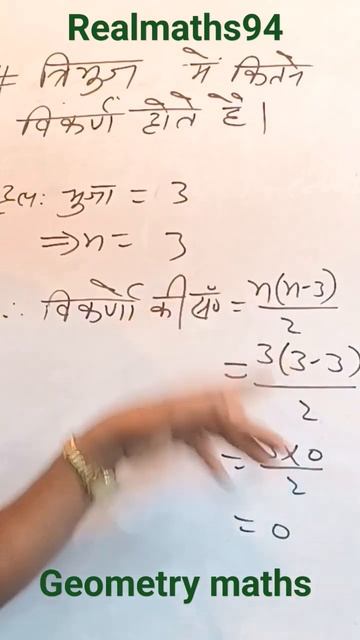 Realmaths94
# त्रिभुज में कितने
विकर्ण होते है।
हल: भुजा = 3
⇒ n = 3
∴ विकर्णो की सं० = n(n-3)/2
= 3(3-3)/2
= 3×0/2
= 0
Geometry maths